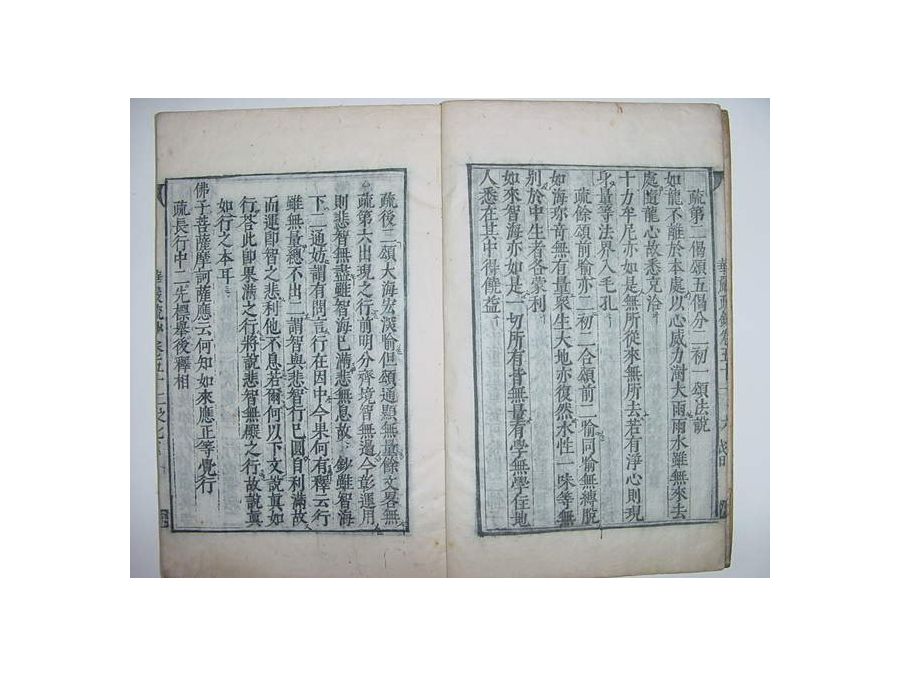 疏第二偈頌五偈分二初一頌法說
如龍不離於本處以心威力澍大雨雨水雖無來去
處隨龍心故悉充洽
十力牟尼亦如是無所從來無所去若有淨心則現
身量等法界入毛孔
疏餘頌前喻亦二初二合頌前二喻同喻無縛脫
如海珍奇無有量眾生大地亦復然水性一味等無
別於中生者各蒙利
如來智海亦如是一切所有皆無量有學無學住地
人悉在其中得饒益
疏後二頌大海宏深喻但頌通顯無量餘文畧無
疏第六出現之行前明分齊境智無邊今彰運用
則悲智無盡雖智海已滿悲無息故 鈔雖智海
下二通妨謂有問言行在因中今果何有釋云行
雖無量總不出二謂智與悲智行已圓自利滿故
而運即智之悲利他不息若爾何以下文說真如
行答此即果滿之行將說悲智無礙之行故說真
如行之本耳
佛子菩薩摩訶薩應云何知如來應正等覺行
疏長行中二先標舉後釋相